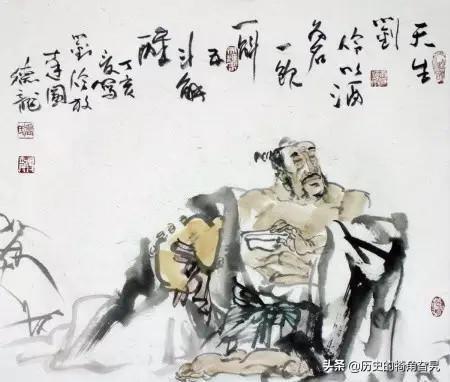 天生
劉
伶以酒
為名
一飲
一斛
五
斗解
酲
丁亥
夏寫
劉伶放
達圖
德龍
头条 @历史的犄角旮旯